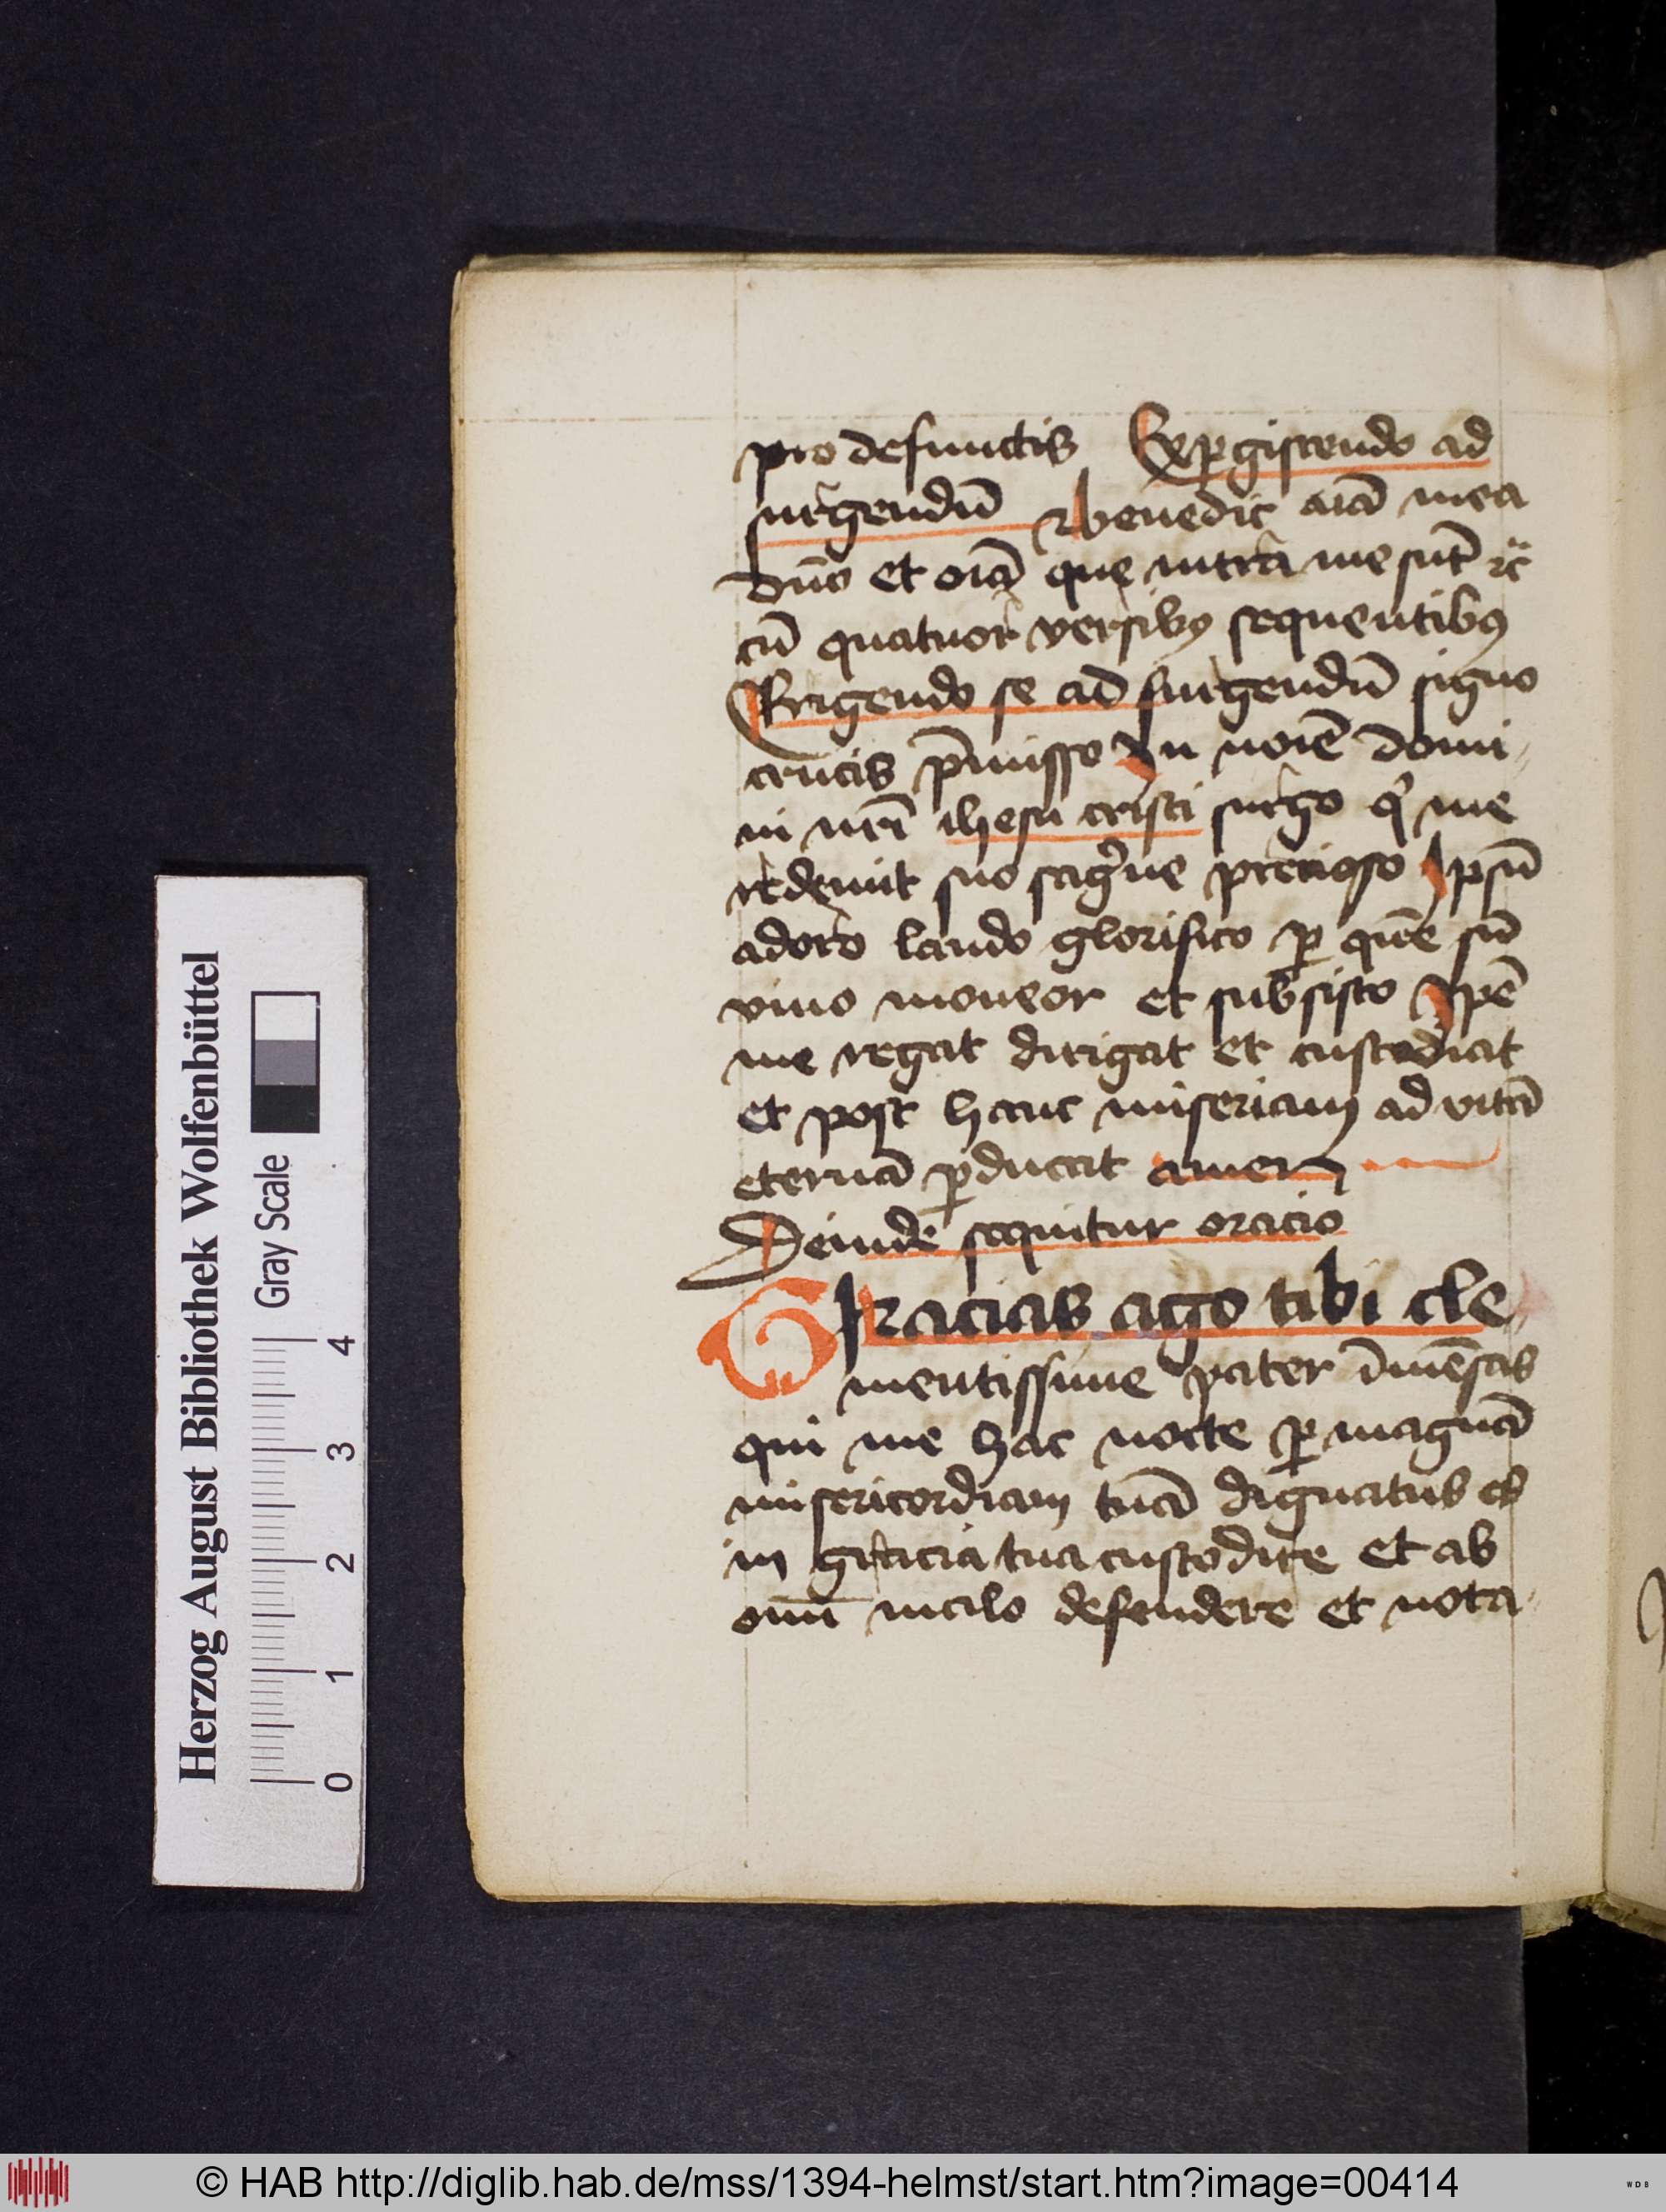 pro defunctis Expgiscendo ad
surgendū Benedic aīa mea
dn̄o et oīa que intra me sūt ⁊c̄
cū quatuor versibꝫ sequentibꝫ
Erigendo se ad surgendū signo
crucis p̄misso In noīe domi
ni nr̄i ihesu cristi surgo qͥ me
redemit suo sāgͥne precioso Ipsū
adoro laudo glorifico ꝑ quē sū
viuo moueor et subsisto Ipē
me regat dirigat et custodiat
et post hanc miseriam ad vitā
eternā ꝑducat amen
Deinde sequitur oracio
Gracias ago tibi cle
mentissime pater
qui me hac nocte ꝑ magnā
misericordiam tuā dignatus es
in gracia tua custodire et ab
omī malo defendere et nota
Herzog August Bibliothek Wolfenbüttel
Gray Scale
0 1 2 3 4
© HAB http://diglib.hab.de/mss/1394-helmst/start.htm?image=00414
WDB